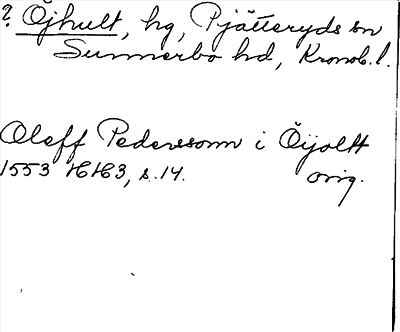 ? Öjhult, hg, Pjätteryds sn
Sunnerbo hd, Kronob. l.
Oleff Pederssonn i Öÿoltt
1553 HH3, s. 14.
orig.